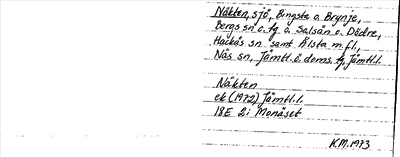 Näkten, sjö, Bingsta o. Brynje,
Bergs sn o. tg o. Salsån o. Dödre,
Hackås sn samt Ålsta m.fl.,
Näs sn, Jämtl. ö. doms. tg, Jämtl.l.
Näkten
ek (1972) Jämtl.l.
18E 2i Monäset
K.M. 1973